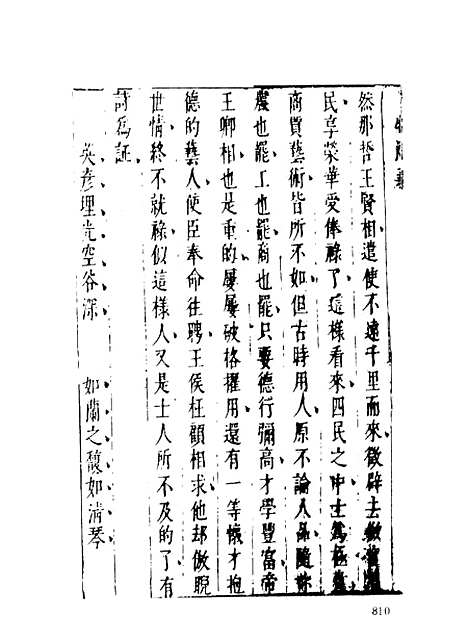 然那哲王賢相遣使不遠千里而來徵辟去
民享榮華受俸祿了這樣看來四民之中士爲
商賈藝術皆所不如但古時用人原不論人品隨你
農也罷工也罷商也罷只要德行彌高才學豐富帝
王卿相也是重的屢屢破格擢用還有一等懷才抱
德的藝人使臣奉命往聘王侯枉顧相求他却傲睨
世情終不就祿似這樣人又是士人所不及的了有
詩爲証
英彥理光空谷深 如蘭之馥如清琴
810